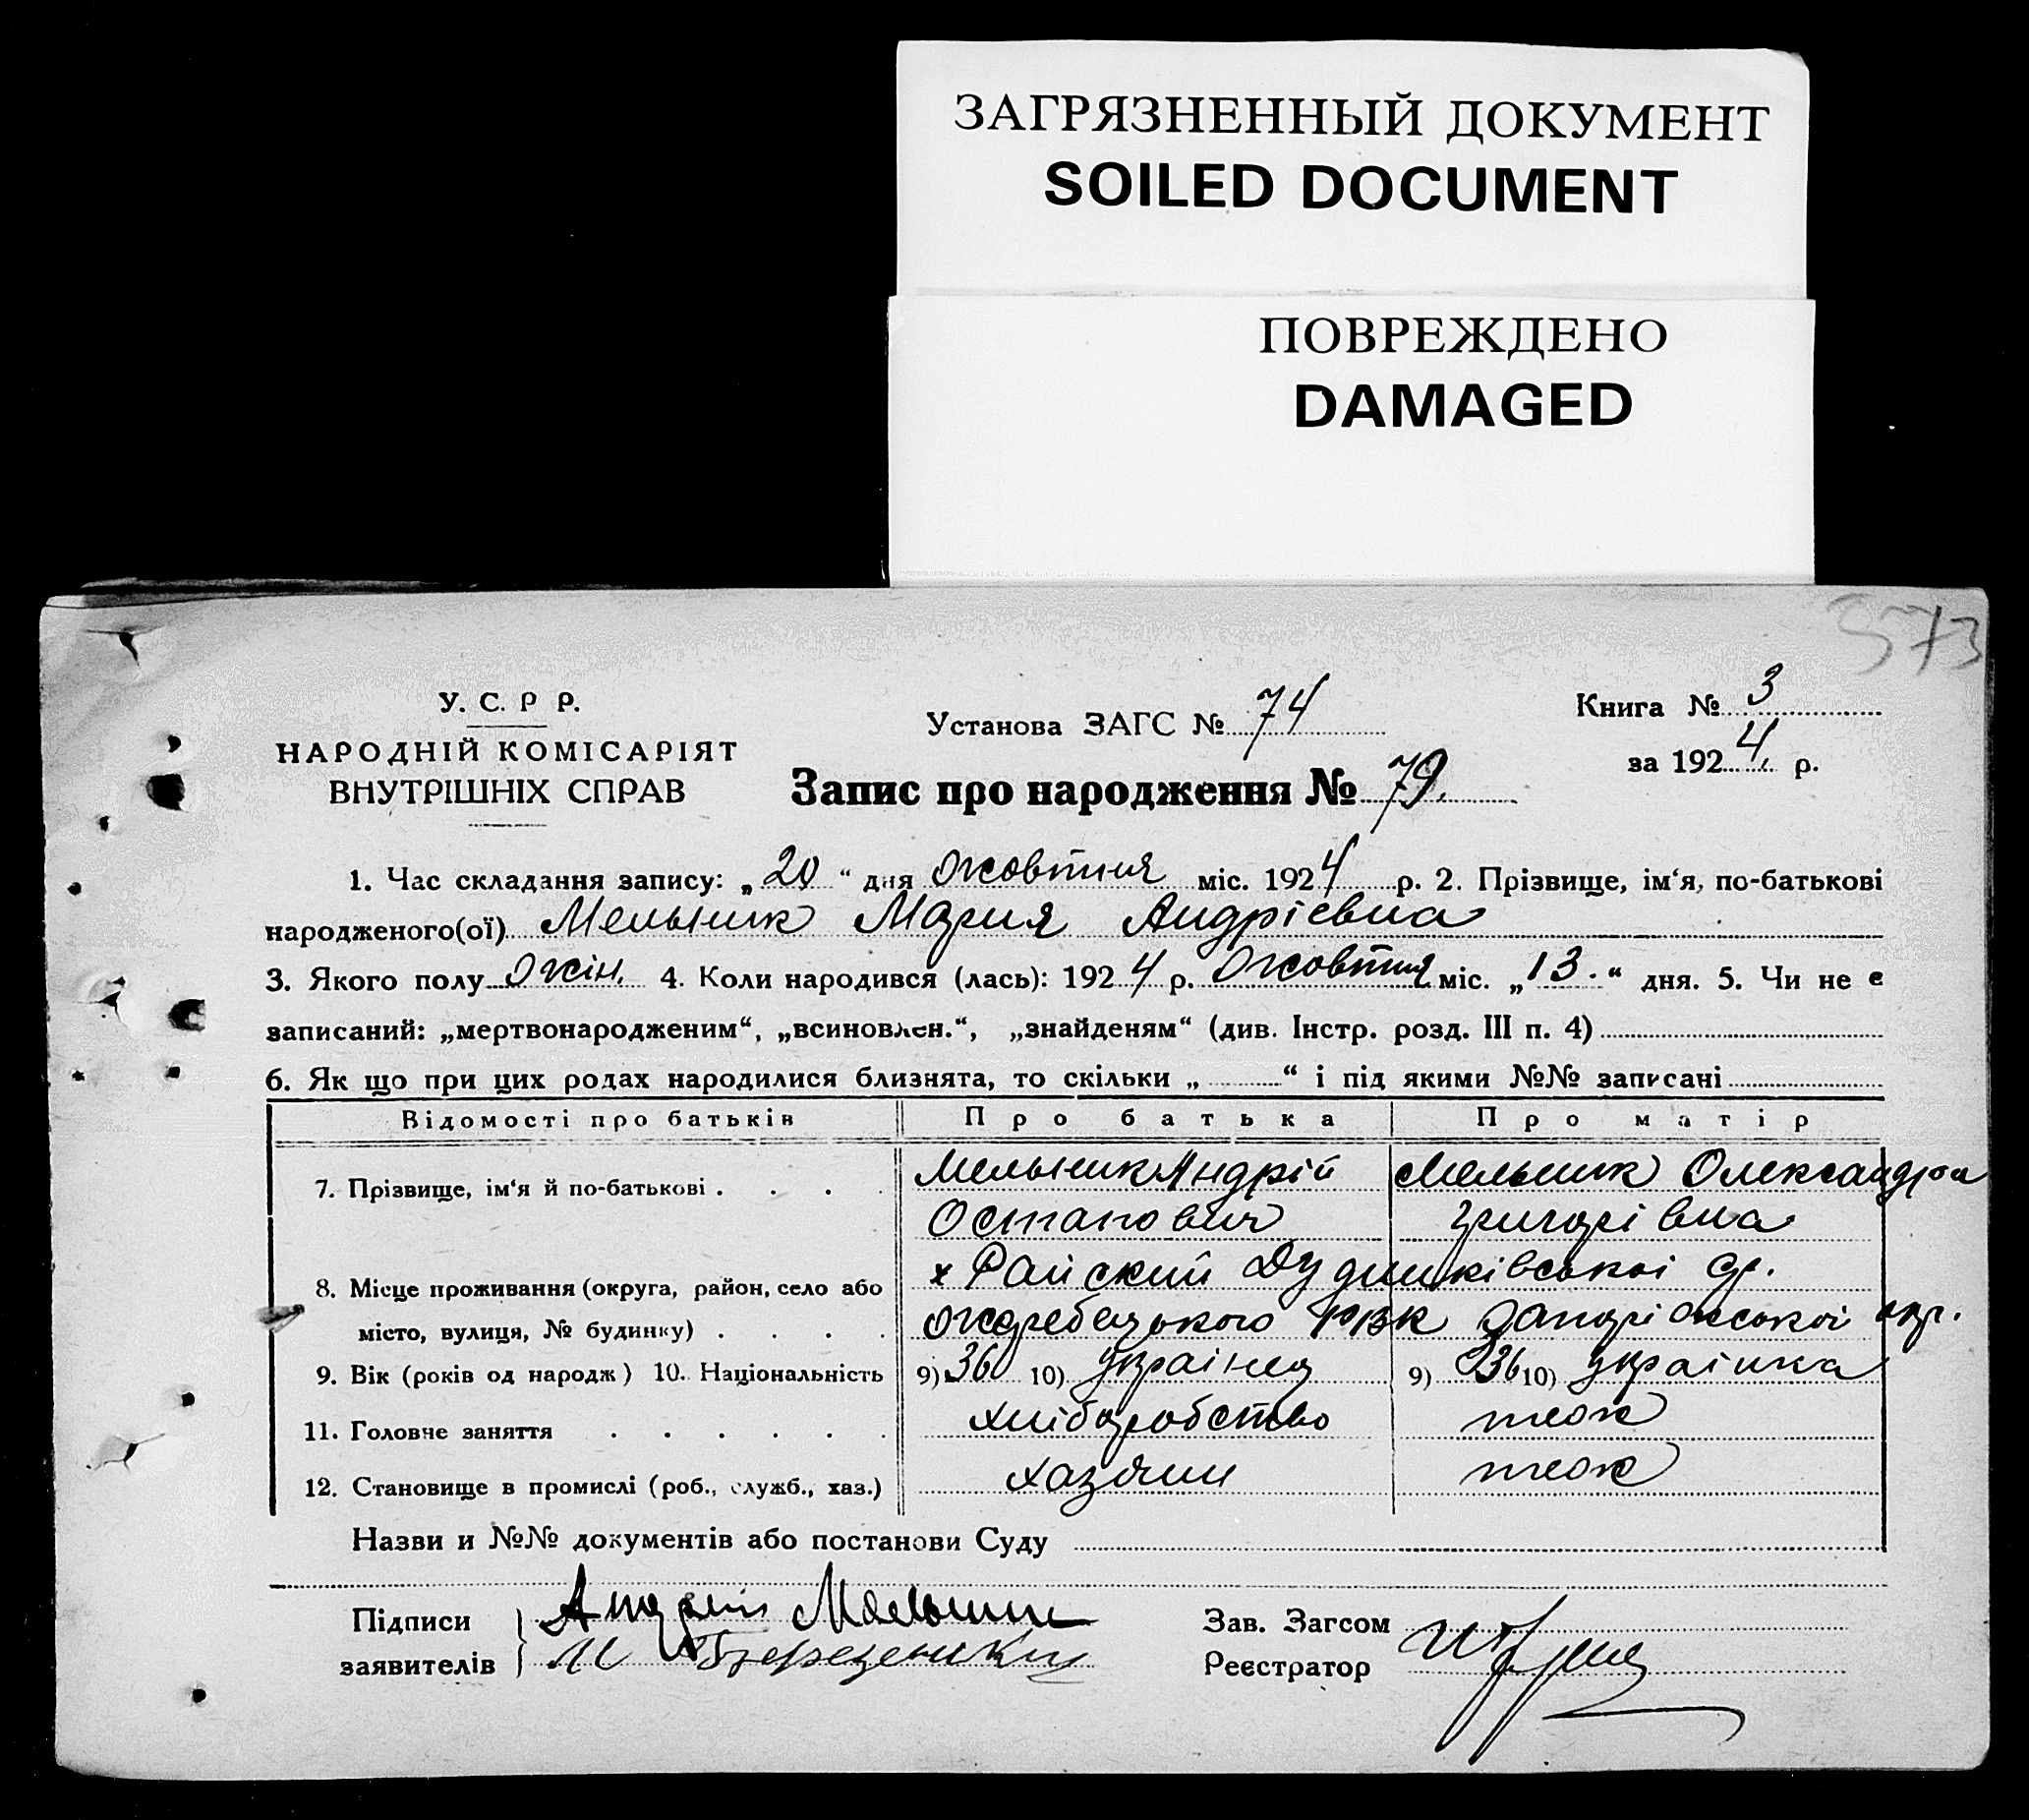 ЗАГРЯЗНЕННЫЙ ДОКУМЕНТ
SOILED DOCUMENT
ПОВРЕЖДЕНО
DAMAGED
573
У. С. Р Р.
НАРОДНІЙ КОМІСАРІЯТ
ВНУТРІШНІХ СПРАВ
Установа ЗАГС № 74
Запис про народження № 79.
Книга № 3
за 1924 р.
1. Час складання запису: „20“ дня жовтня міс. 1924 р. 2. Прізвище, ім‘я, по-батькові
народженого(ої) Мельник Мария Андрієвна
3. Якого полу жін. 4. Коли народився (лась): 1924 р. жовтня міс. „13.“ дня. 5. Чи не є
записаний: „мертвонародженим“, „всиновлен.“, „знайденям“ (див. Інстр. розд. III п. 4)
6. Як що при цих родах народилися близнята, то скільки „ “ і під якими №№ записані
Відомості про батьків Про батька Про матір
7. Прізвище, ім‘я й по-батькові . . . . Мельник Андрій Мельник Олександра
Остапович Григорівна
8. Місце проживання (округа, район, село або х Райский
місто, вулиця, № будинку) . . . . жеребецького РВК Запоріжської окр.
9. Вік (років од народж) 10. Національність 9) 36 10) українец 9) 36 10) українка
11. Головне заняття . . . . . . хліборобство теж
12. Становище в промислі (роб., служб., хаз.) хазяин теж
Назви и №№ документів або постанови Суду
Підписи Андрій Мельник
заявителів М
Зав. Загсом
Реєстратор